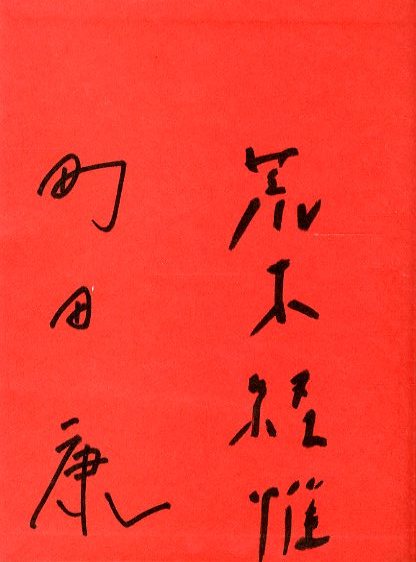 荒木経惟
町田康